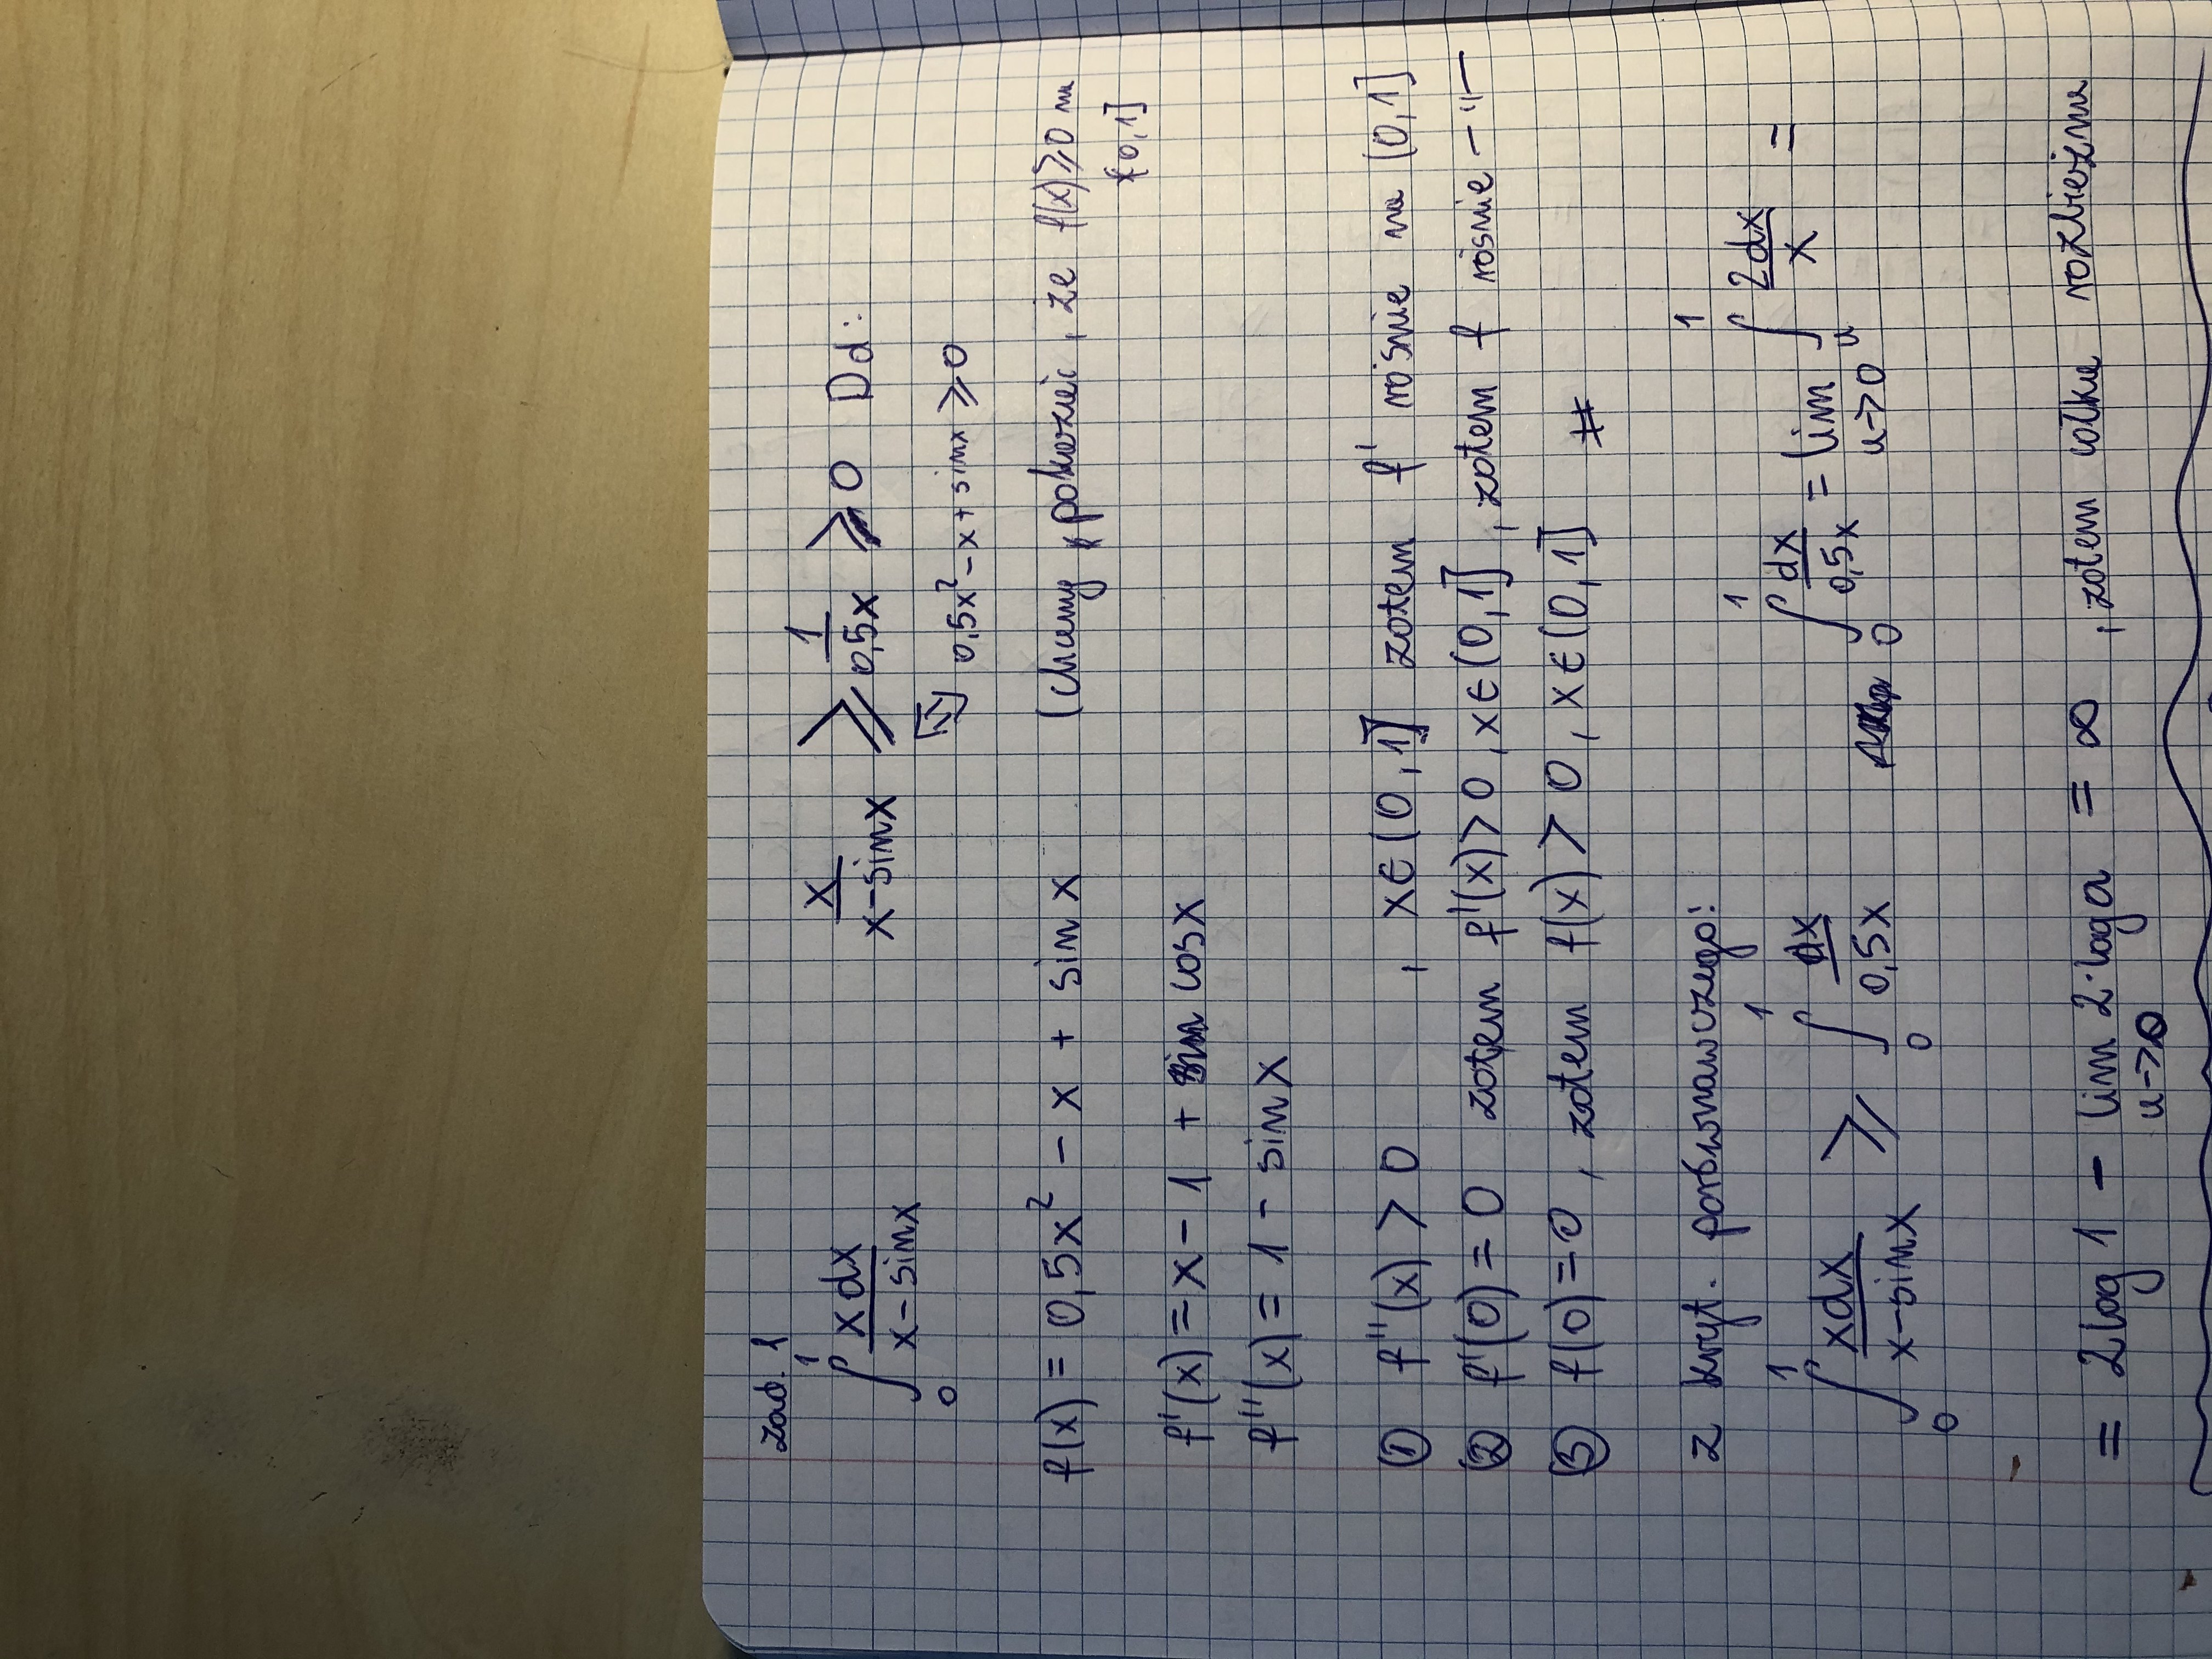 zad. 1
∫₀¹ x dx / (x - sin x)    x / (x - sin x) ⩾ 1 / 0,5x ⩾ 0  Dd:
⇕ 0,5x² - x + sin x ⩾ 0
f(x) = 0,5x² - x + sin x    (chcemy pokazać, że f(x) ⩾ 0 na
(0,1]
f'(x) = x - 1 + cos x
f''(x) = 1 - sin x
① f''(x) > 0 , x ∈ (0,1] zatem f' rośnie na (0,1]
② f'(0) = 0 zatem f'(x) > 0, x ∈ (0,1], zatem f rośnie —"—
③ f(0) = 0, zatem f(x) > 0, x ∈ (0,1] #
z kryt. porównawczego:
∫₀¹ xdx / (x - sin x) ⩾ ∫₀¹ dx / 0,5x    ∫₀¹ dx / 0,5x = lim u->0 ∫ᵤ¹ 2dx / x =
= 2 log 1 - lim u->0 2·log a = ∞, zatem całka rozbieżna